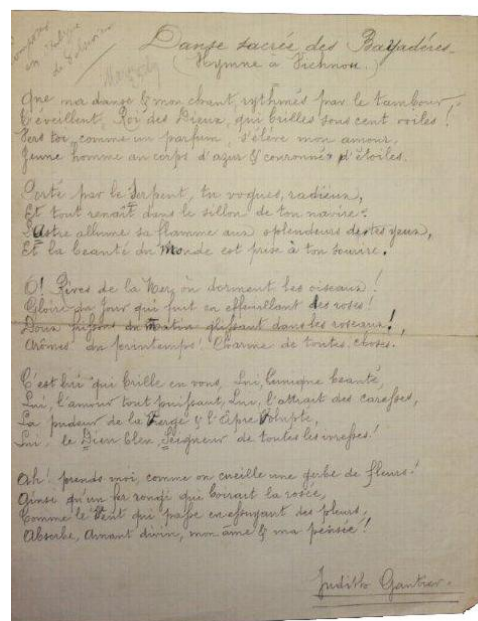 Danse sacrée des Bayadères
(Hymne à Vichnou.)
Que ma danse & mon chant, rythmés par le tambour,
T'éveillent, Roi des Dieux, qui brilles sous cent voiles!
Vers toi, comme un parfum, s'élève mon amour,
Jeune homme au corps d'azur & couronné d'étoiles.
Porté par le Serpent, tu vogues, radieux,
Et tout renaît dans le sillon de ton navire:
L'Astre allume sa flamme aux splendeurs de tes yeux,
Et la beauté du Monde est prise à ton sourire.
O! Rives de la Mer, où dorment les oiseaux!
Gloire du Jour qui fuit en effeuillant des roses!
Doux frissons du Matin glissant dans les roseaux!,
Arômes du printemps! Charme de toutes choses.
C'est lui qui brille en vous, Lui, l'unique beauté,
Lui, l'amour tout puissant, Lui, l'attrait des caresses,
La pudeur de la Vierge & l'âpre Volupté,
Lui, le Dieu bleu, Seigneur de toutes les ivresses!
Ah! prends-moi, comme on cueille une gerbe de fleurs!
Ainsi qu'un fer rougi qui boirait la rosée,
Comme le Vent qui passe en essuyant des pleurs,
Absorbe, Amant divin, mon âme & ma pensée!
Judith Gautier.